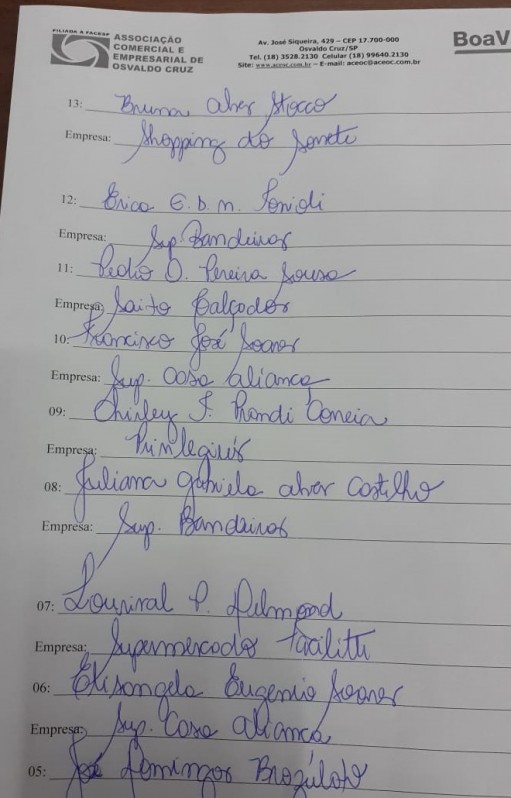 FILIADA A FACESP
ASSOCIAÇÃO
COMERCIAL E
EMPRESARIAL DE
OSVALDO CRUZ
Av. José Siqueira, 429 – CEP 17.700-000
Osvaldo Cruz/SP
Tel. (18) 3528.2130 Celular (18) 99640.2130
Site: www.aceoc.com.br – E-mail: aceoc@aceoc.com.br
BoaV
13: Bruna Alves Stocco
Empresa: Shopping do Sorvete
12: Erica E. b. m.
Empresa: Sup. Bandeiras
11: Pedro O. Pereira Sousa
Empresa: Saito Calçados
10: Francisco José Soares
Empresa: Sup. Casa aliança
09: Shirley F. Correia
Empresa: Privilegiu's
08: Juliana Gabriela alves Castilho
Empresa: Sup. Bandeiras
07: Lourival P.
Empresa: Supermercados Facilitti
06: Elisangela Eugenio Soares
Empresa: Sup. Casa aliança
05: José Domingos